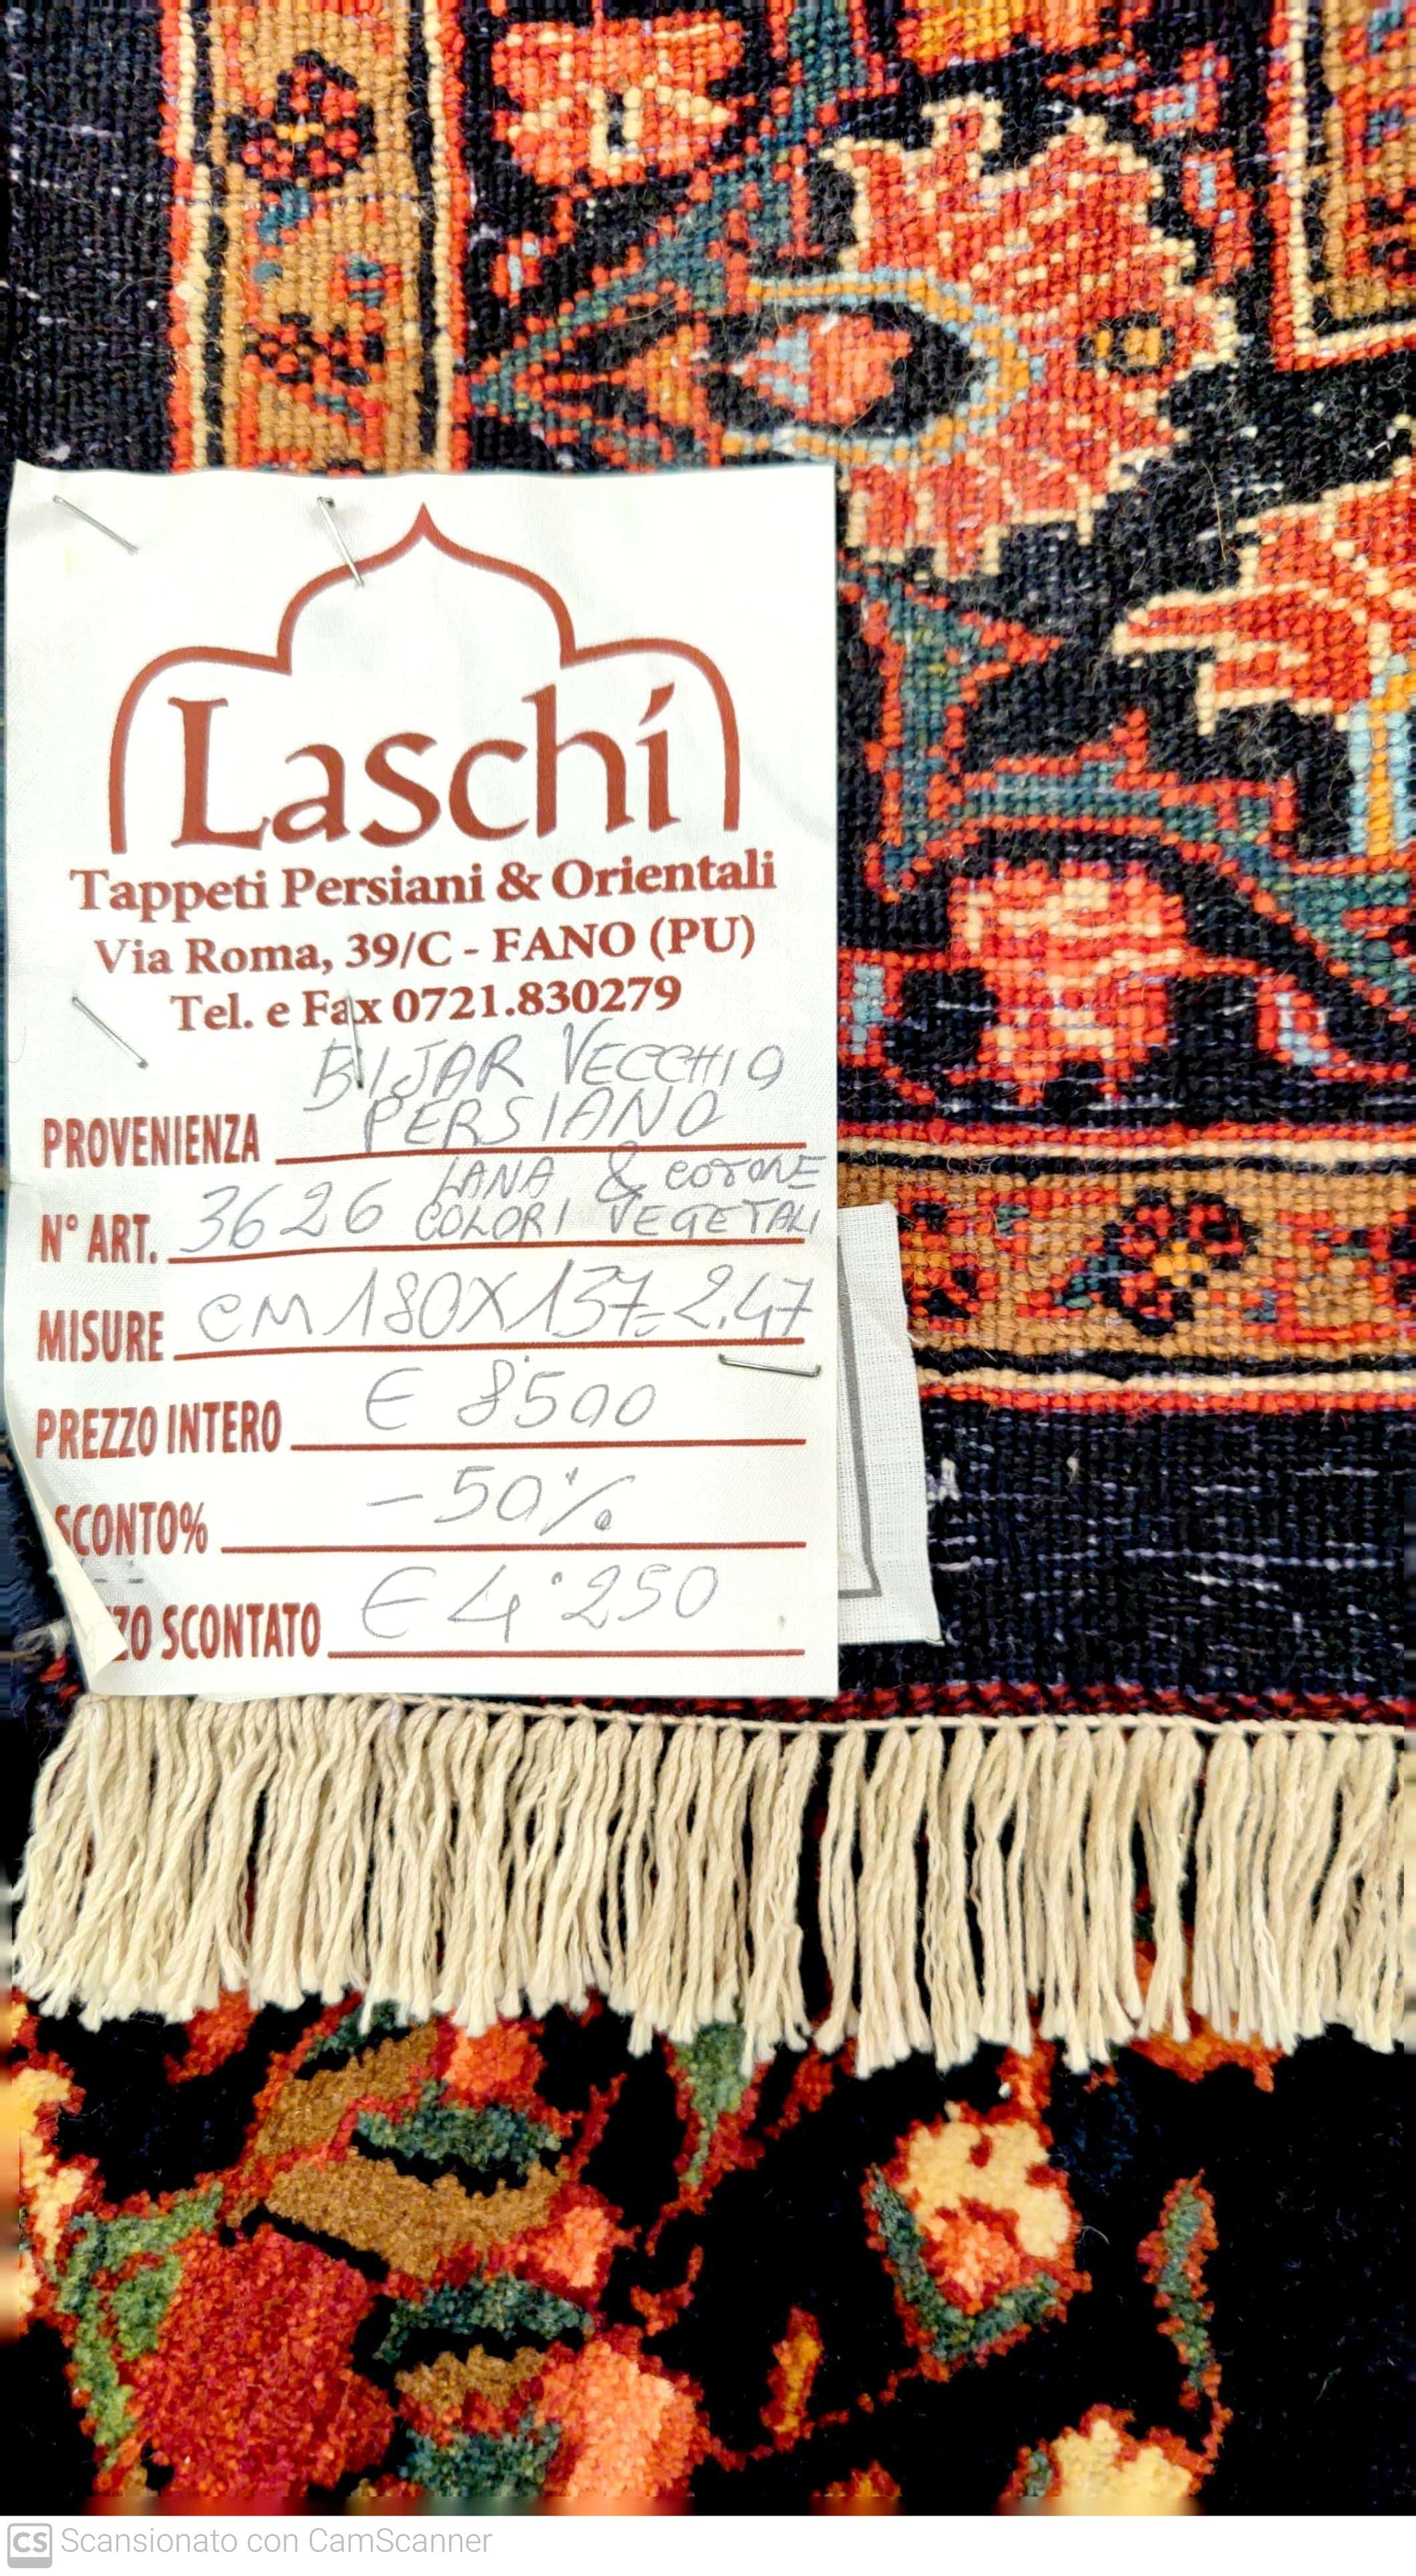 Laschi
Tappeti Persiani & Orientali
Via Roma, 39/C - FANO (PU)
Tel. e Fax 0721.830279
BIJAR VECCHIO
PROVENIENZA PERSIANO
LANA & COTONE
N° ART. 3626 COLORI VEGETALI
MISURE CM 180X137=2.47
PREZZO INTERO € 8500
SCONTO% -50%
ZO SCONTATO € 4.250
CS Scansionato con CamScanner